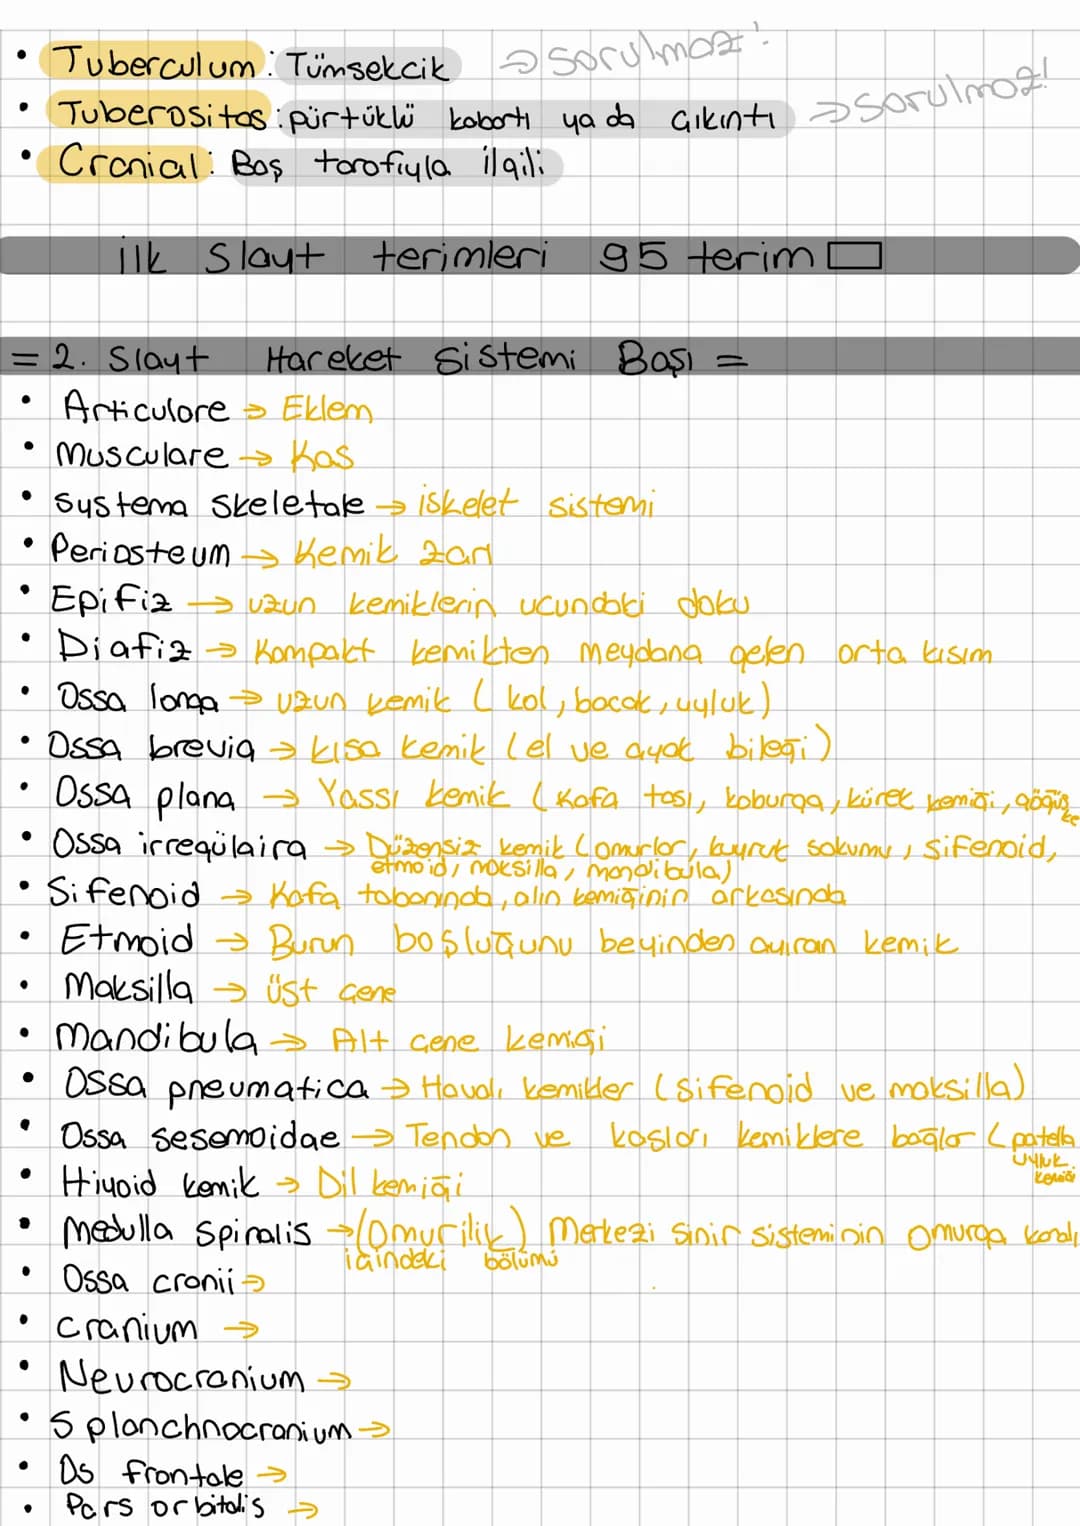 • Tuberculum: Tümsekcik → sorulmaz!
• Tuberositas: pürtüklü kabartı ya da çıkıntı → sorulmaz!
• Cranial: Baş tarafıyla ilgili
ilk Slayt terimleri 95 terim
= 2. Slayt Hareket Sistemi Başı =
• Articulare → Eklem
• Musculare → Kas
• Systema Skeletale → iskelet sistemi
• Periosteum → Kemik zarı
• Epifiz → uzun kemiklerin ucundaki doku
• Diafiz → Kompakt kemikten meydana gelen orta kısım
• Ossa longa → uzun kemik (kol, bacak, uyluk)
• Ossa brevia → kısa kemik (el ve ayak bileği)
• Ossa plana → Yassı kemik (Kafa tası, kaburga, kürek kemiği, göğüs ke
• Ossa irregülaira → Düzensiz kemik (omurlar, kuyruk sokumu, sifenoid,
etmoid, maksilla, mandibula)
• Sifenoid → Kafa tabanında, alın kemiğinin arkasında
• Etmoid → Burun boşluğunu beyinden ayıran kemik
• Maksilla → üst çene
• Mandibula → Alt çene kemiği
• Ossa pneumatica → Havalı kemikler (sifenoid ve maksilla)
• Ossa sesemoidae → Tendon ve kasları kemiklere bağlar (patella
uyluk
kemiği
• Hiyoid kemik → Dil kemiği
• Medulla Spinalis → (Omurilik) Merkezi sinir sisteminin omurga kanalı
içindeki bölümü
• Ossa cranii →
• Cranium →
• Neurocranium →
• Splanchnocranium →
• Os frontale →
• Pars orbitalis →